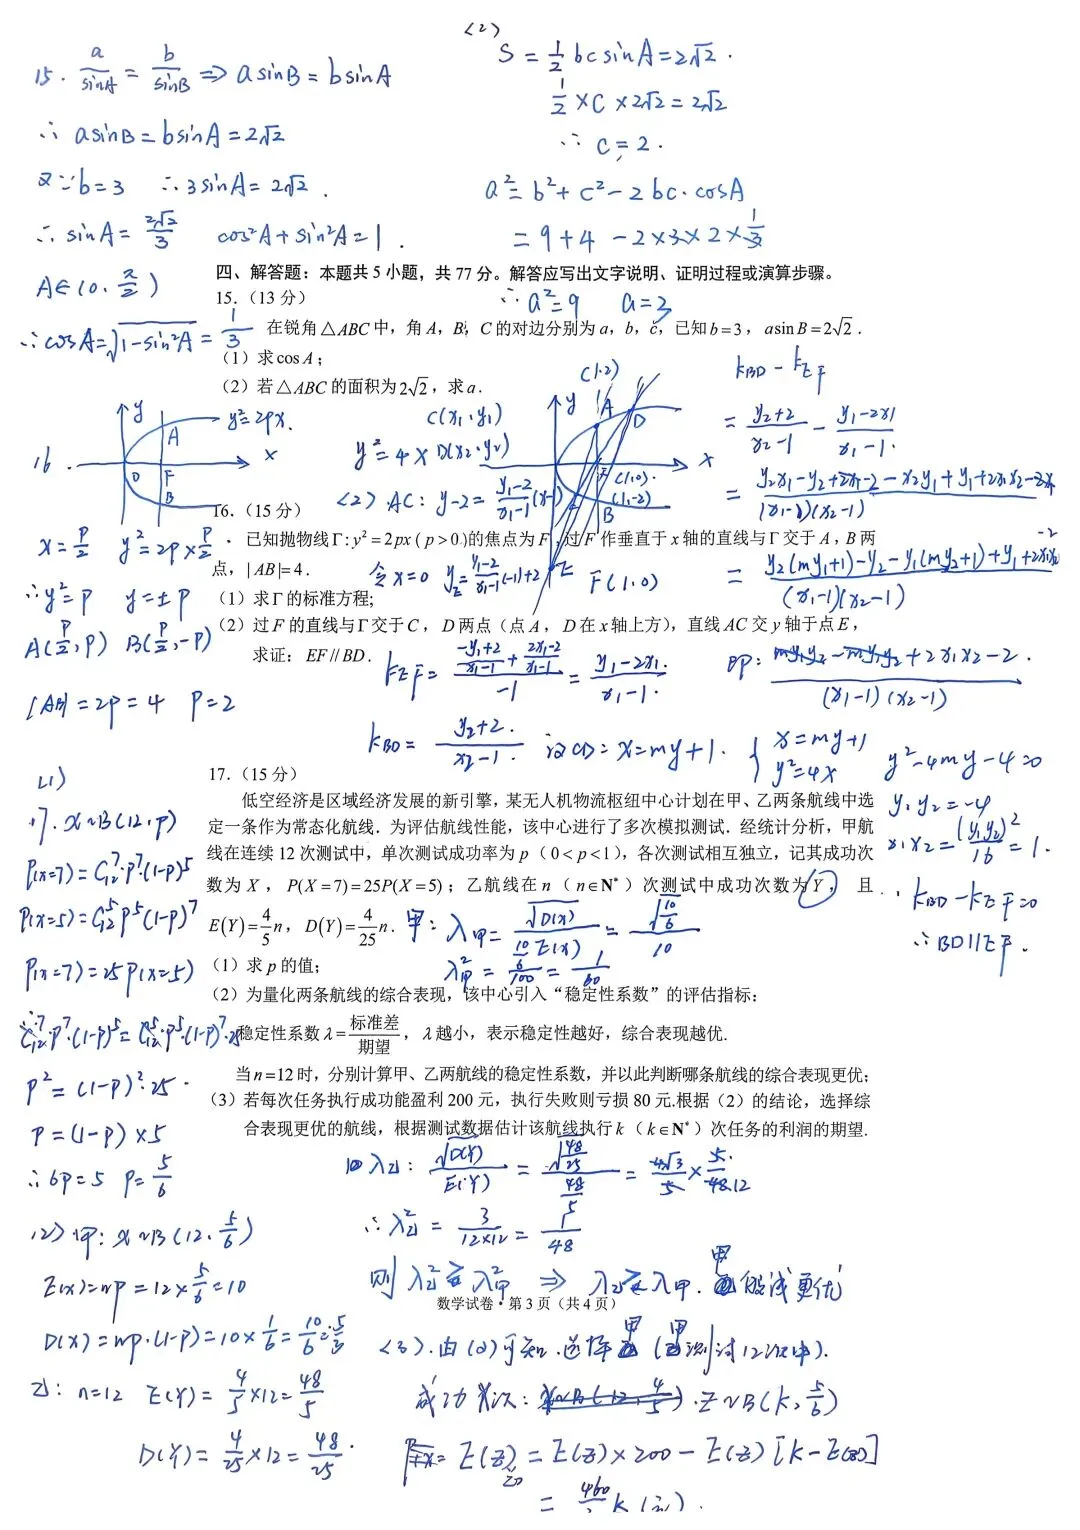 15. a/sinA = b/sinB ⇒ asinB = bsinA
∴ asinB = bsinA = 2√2
又∵ b=3 ∴ 3sinA = 2√2.
∴ sinA = 2√2/3 cos²A + sin²A = 1.
A∈(0, π/2)
∴ cosA = √(1-sin²A) = 1/3
(2)
S = 1/2 bcsinA = 2√2.
1/2 × C × 2√2 = 2√2
∴ C = 2.
a² = b² + c² - 2bc·cosA
= 9 + 4 - 2×3×2×1/3
∴ a² = 9 a = 3
四、解答题：本题共5小题，共77分。解答应写出文字说明、证明过程或演算步骤。
15.（13分）
在锐角△ABC中，角A，B，C的对边分别为a，b，c，已知b=3，asinB=2√2.
（1）求cosA；
（2）若△ABC的面积为2√2，求a.
16.
y
y²=2px.
A
x
O
F
B
x = p/2 y² = 2p×p/2
∴ y² = p y = ±p
A(p/2, p) B(p/2, -p)
|AB| = 2p = 4 p = 2
C(x₁, y₁)
y² = 4x D(x₂, y₂)
(1,2)
y
A
D
x
(1,0)
(1,-2)
B
E
(2) AC: y-2 = (y₁-2)/(x₁-1) (x-1)
16.（15分）
已知抛物线Γ:y²=2px(p>0)的焦点为F，过F作垂直于x轴的直线与Γ交于A，B两
点，|AB|=4.
令 x=0 y_E = (y₁-2)/(x₁-1) (-1)+2 F(1,0)
（1）求Γ的标准方程;
（2）过F的直线与Γ交于C，D两点（点A，D在x轴上方），直线AC交y轴于点E，
求证：EF//BD.
k_EF = ((-y₁+2)/(x₁-1) + (2x₁-2)/(x₁-1))/(-1) = (y₁-2x₁)/(x₁-1).
k_BD = (y₂+2)/(x₂-1). 设CD: x=my+1. { x=my+1 y²=4x y²-4my-4=0
k_BD - k_EF
= (y₂+2)/(x₂-1) - (y₁-2x₁)/(x₁-1).
= (y₂x₁-y₂+2x₁-2-x₂y₁+y₁+2x₁x₂-2x₁)/((x₁-1)(x₂-1))
= (y₂(my₁+1)-y₂-y₁(my₂+1)+y₁+2x₁x₂-2)/((x₁-1)(x₂-1))
即: (my₁y₂-my₁y₂+2x₁x₂-2)/((x₁-1)(x₂-1)).
y₁y₂=-4
x₁x₂ = (y₁y₂)²/16 = 1.
∴ k_BD - k_EF = 0
∴ BD∥EF.
17.（15分）
低空经济是区域经济发展的新引擎，某无人机物流枢纽中心计划在甲、乙两条航线中选
定一条作为常态化航线．为评估航线性能，该中心进行了多次模拟测试．经统计分析，甲航
线在连续12次测试中，单次测试成功率为p（0<p<1），各次测试相互独立，记其成功次
数为X，P(X=7)=25P(X=5)；乙航线在n（n∈N*）次测试中成功次数为Y，且
E(Y)=4/5 n，D(Y)=4/25 n.
（1）求p的值；
（2）为量化两条航线的综合表现，该中心引入“稳定性系数”的评估指标：
稳定性系数λ=标准差/期望，λ越小，表示稳定性越好，综合表现越优.
当n=12时，分别计算甲、乙两航线的稳定性系数，并以此判断哪条航线的综合表现更优；
（3）若每次任务执行成功能盈利200元，执行失败则亏损80元.根据（2）的结论，选择综
合表现更优的航线，根据测试数据估计该航线执行k（k∈N*）次任务的利润的期望.
(1)
17. X~B(12, p)
P(x=7) = C₁₂⁷·p⁷·(1-p)⁵
P(x=5) = C₁₂⁵ p⁵ (1-p)⁷
P(x=7) = 25P(x=5)
∴ C₁₂⁷·p⁷·(1-p)⁵ = C₁₂⁵·p⁵·(1-p)⁷·25
p² = (1-p)²·25.
p = (1-p)×5
∴ 6p=5 p=5/6
(2) 甲: X~B(12, 5/6)
E(x) = np = 12×5/6 = 10
D(x) = np·(1-p) = 10×1/6 = 10/6 = 5/3
乙: n=12 E(Y) = 4/5×12 = 48/5
D(Y) = 4/25×12 = 48/25.
甲: λ甲 = √D(x)/E(x) = √(10/6)/10
λ²甲 = (10/6)/100 = 1/60
λ乙: √D(Y)/E(Y) = √(48/25)/(48/5) = 4√3/5 × 5/48
∴ λ²乙 = 3/(12×12) = 1/48
则 λ²乙 > λ²甲 ⇒ λ乙 > λ甲. 甲 航线更优
数学试卷·第3页（共4页）
(3). 由(2)可知. 选择甲 (甲测试12次中).
成功次: X~B(12, 4/5). Z~B(k, 5/6)
E(Z) = E(Z)×200 - E(Z)[k-E(Z)]
= 460 k (元).